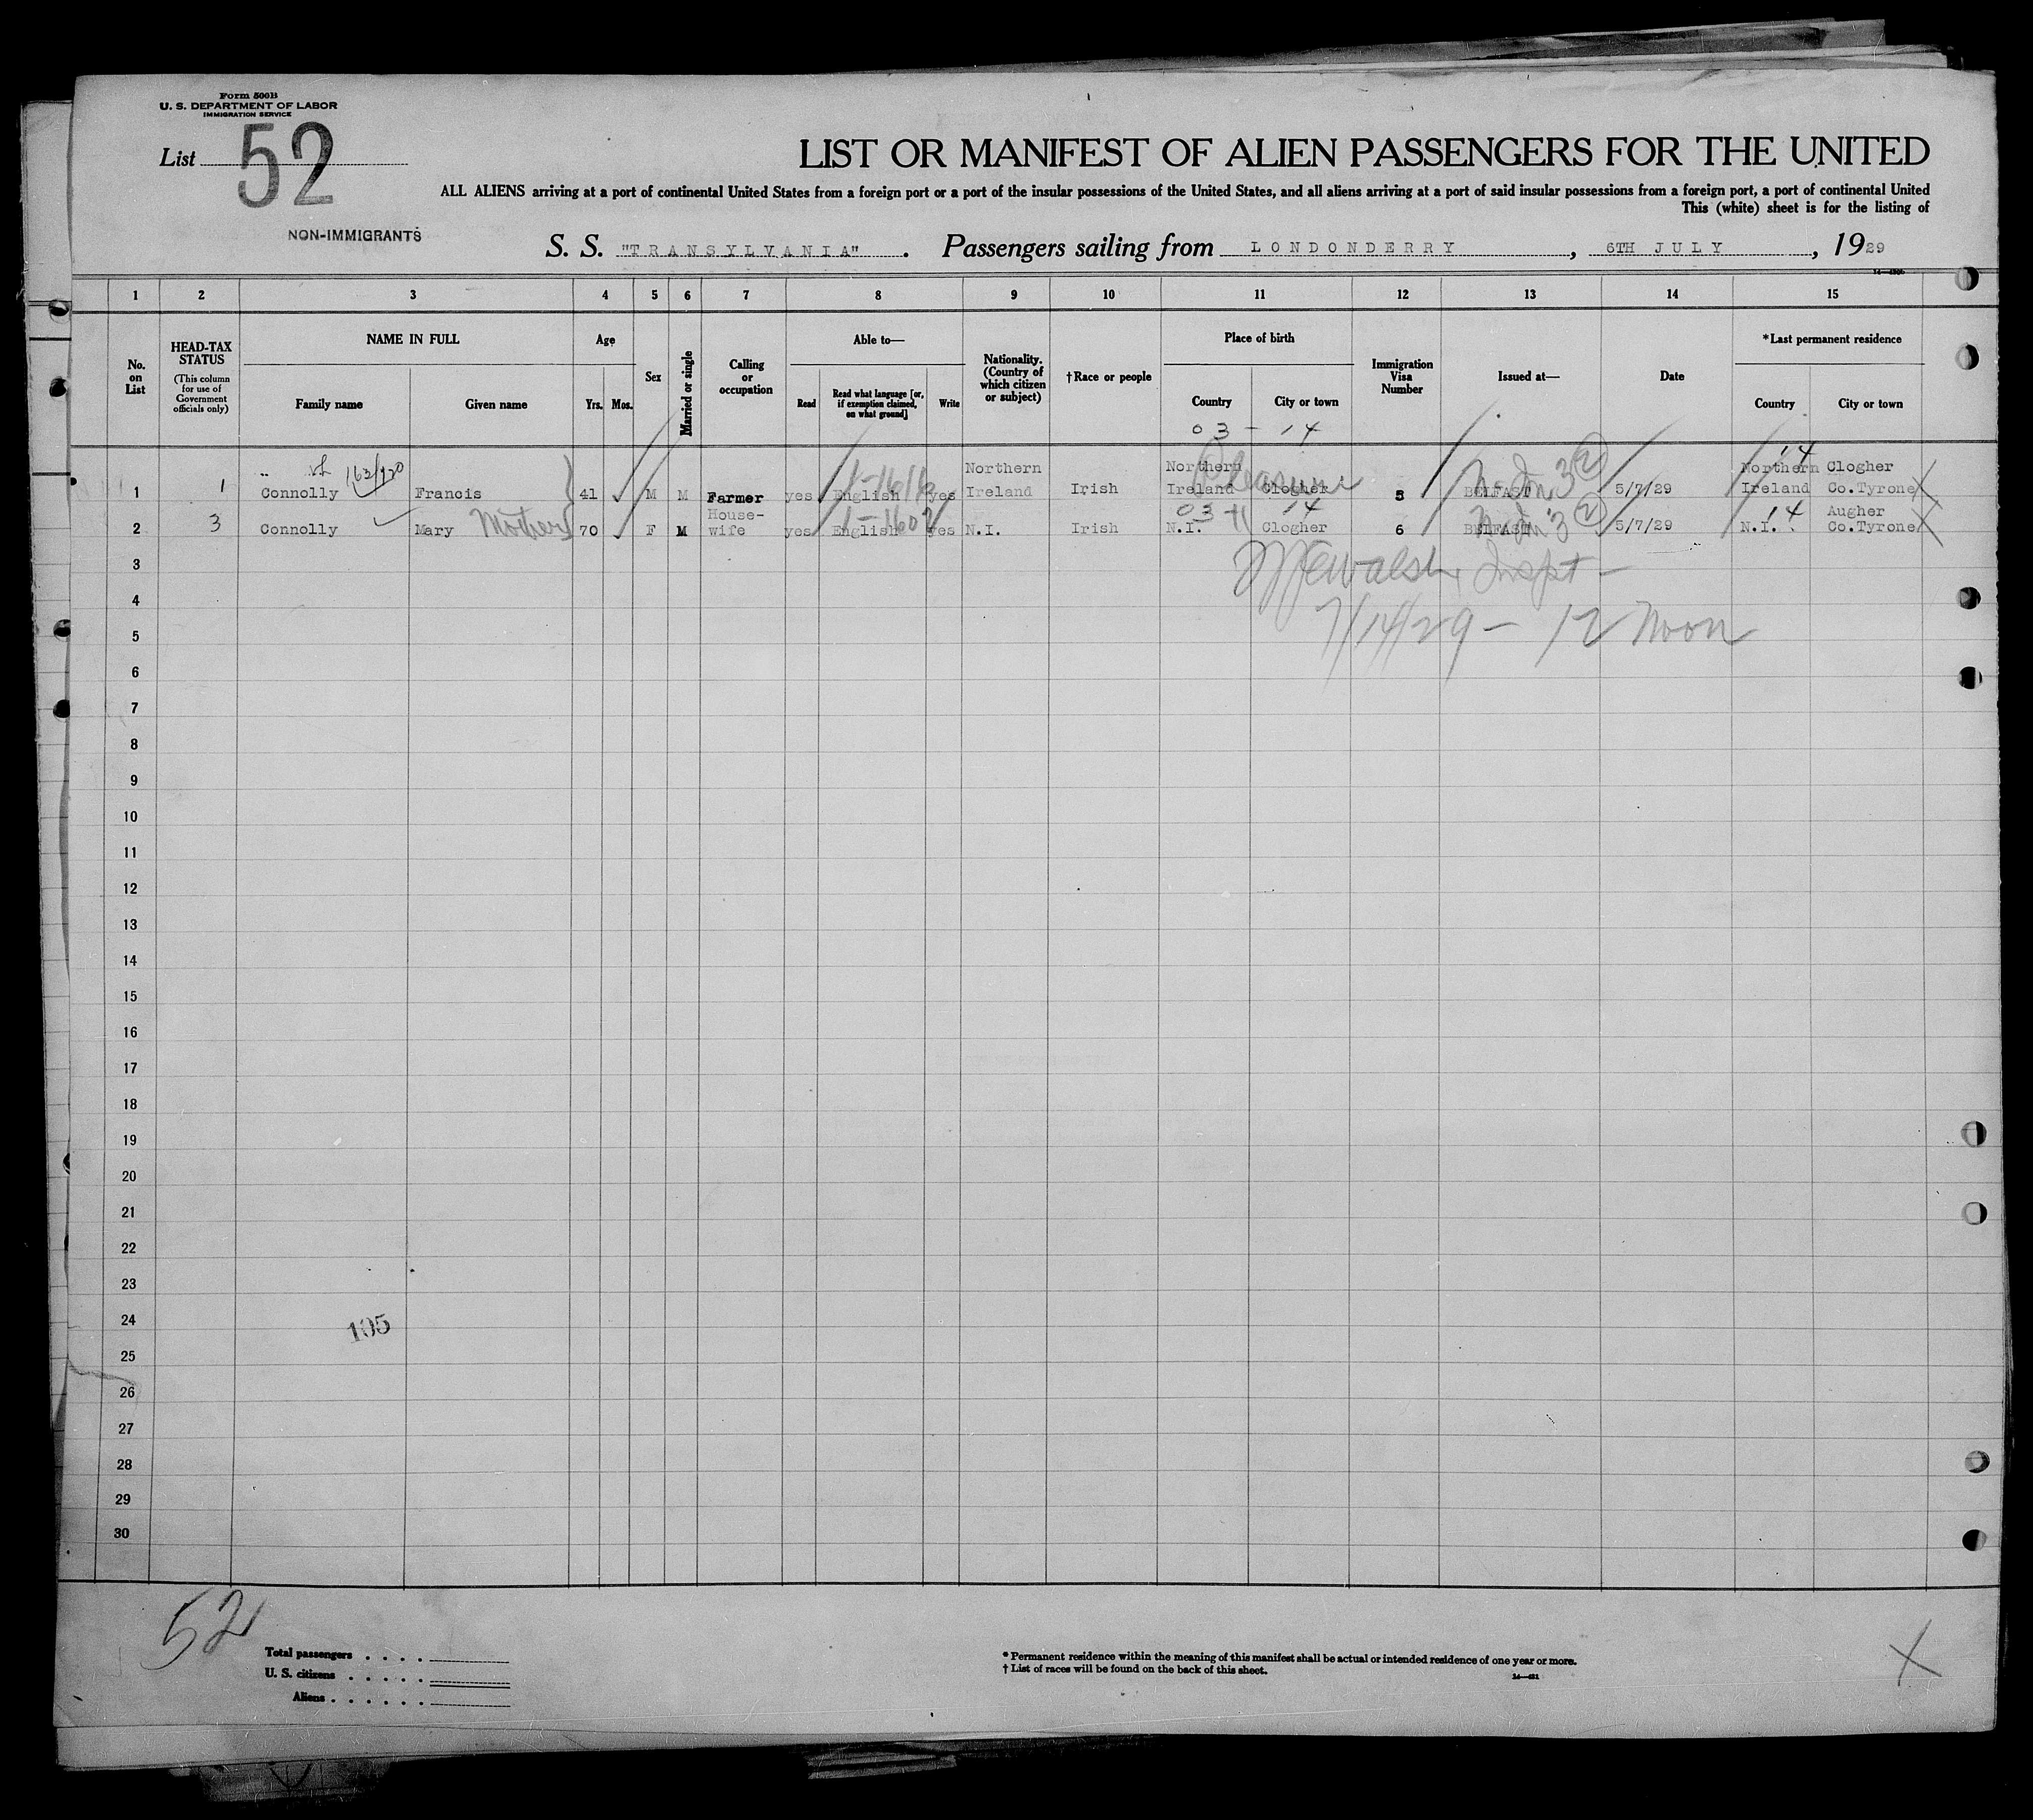 Form 500B
U. S. DEPARTMENT OF LABOR
IMMIGRATION SERVICE
List 52
LIST OR MANIFEST OF ALIEN PASSENGERS FOR THE UNITED
ALL ALIENS arriving at a port of continental United States from a foreign port or a port of the insular possessions of the United States, and all aliens arriving at a port of said insular possessions from a foreign port, a port of continental United
This (white) sheet is for the listing of
NON-IMMIGRANTS
S. S. "TRANSYLVANIA". Passengers sailing from LONDONDERRY, 6TH JULY, 1929
1 2 3 4 5 6 7 8 9 10 11 12 13 14 15
No. on List
HEAD-TAX STATUS
(This column for use of Government officials only)
NAME IN FULL
Family name Given name
Age
Yrs. Mos.
Sex
Married or single
Calling or occupation
Able to—
Read Read what language [or, if exemption claimed, on what ground] Write
Nationality. (Country of which citizen or subject)
†Race or people
Place of birth
Country City or town
03 - 14
Immigration Visa Number
Issued at—
Date
*Last permanent residence
Country City or town
163/920
14
1 1 Connolly Francis 41 M M Farmer yes English yes Northern Ireland Irish Northern Ireland Clogher 5 BELFAST 5/7/29 Northern Ireland Clogher Co.Tyrone
Pleasure
1-1616
03-11 14
2 3 Connolly Mary Mother 70 F M House-wife yes English yes N.I. Irish N.I. Clogher 6 BELFAST 5/7/29 N.I. Augher Co.Tyrone
14
3
Walsh Inspt -
4
7/14/29 - 12 Noon
5
6
7
8
9
10
11
12
13
14
15
16
17
18
19
20
21
22
23
24
105
25
26
27
28
29
30
52
Total passengers . . . .
U. S. citizens . . . . .
Aliens . . . . . .
* Permanent residence within the meaning of this manifest shall be actual or intended residence of one year or more.
† List of races will be found on the back of this sheet.
X